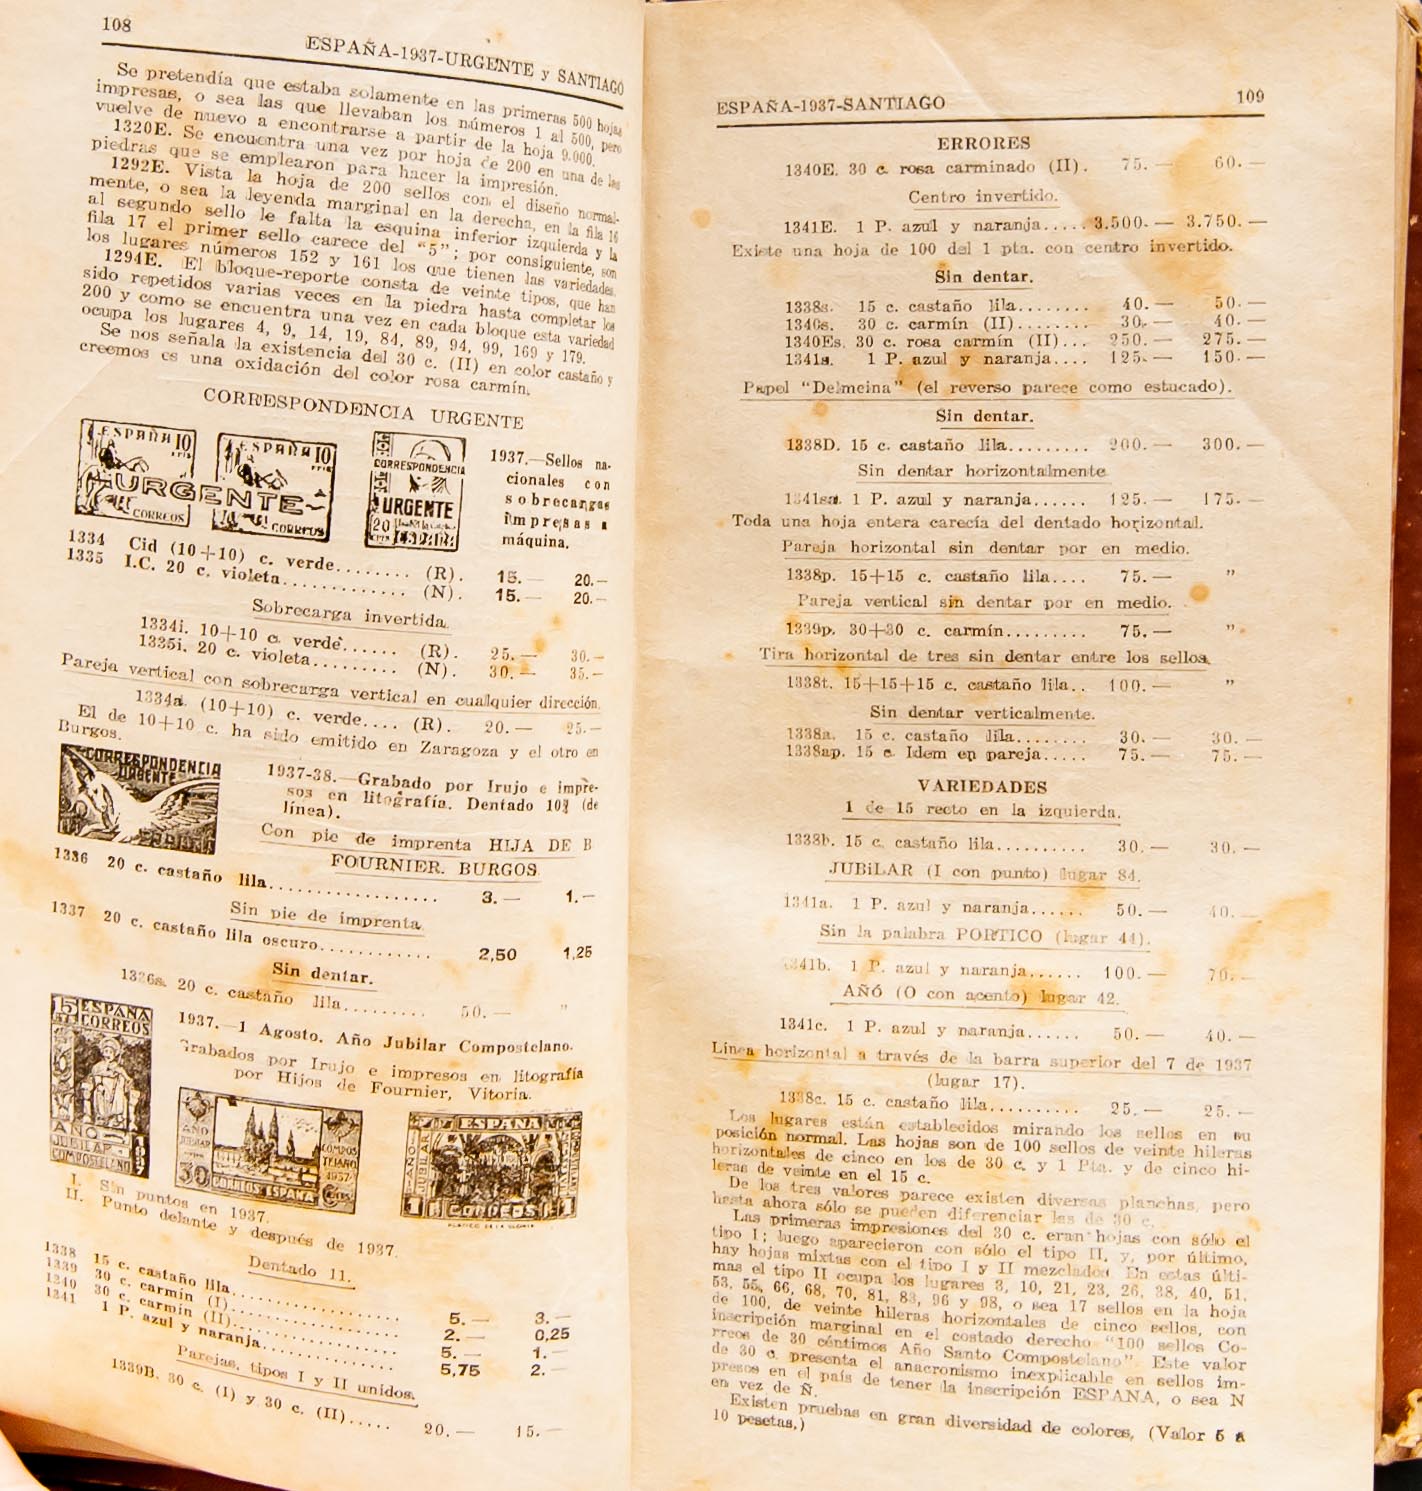 108
ESPAÑA-1937-URGENTE y SANTIAGO
Se pretendía que estaba solamente en las primeras 500 hojas
impresas, o sea las que llevaban los números 1 al 500, pero
vuelve de nuevo a encontrarse a partir de la hoja 9.000.
1320E. Se encuentra una vez por hoja de 200 en una de las
piedras que se emplearon para hacer la impresión.
1292E. Vista la hoja de 200 sellos con el diseño normal-
mente, o sea la leyenda marginal en la derecha, en la fila 16
al segundo sello le falta la esquina inferior izquierda y la
fila 17 el primer sello carece del "5"; por consiguiente, son
los lugares números 152 y 161 los que tienen las variedades.
1294E. El bloque-reporte consta de veinte tipos, que han
sido repetidos varias veces en la piedra hasta completar los
200 y como se encuentra una vez en cada bloque esta variedad
ocupa los lugares 4, 9, 14, 19, 84, 89, 94, 99, 169 y 179.
Se nos señala la existencia del 30 c. (II) en color castaño y
creemos es una oxidación del color rosa carmín.
CORRESPONDENCIA URGENTE
ESPAÑA 10
CORREOS
ESPAÑA 10
CORREOS
URGENTE
CORRESPONDENCIA
URGENTE
20
ESPAÑA
1937.—Sellos na-
cionales con
sobrecargas
impresas a
máquina.
1334 Cid (10+10) c. verde........ (R). 15.— 20.—
1335 I.C. 20 c. violeta............ (N). 15.— 20.—
Sobrecarga invertida.
1334i. 10+10 c. verde...... (R). 25.— 30.—
1335i. 20 c. violeta......... (N). 30.— 35.—
Pareja vertical con sobrecarga vertical en cualquier dirección.
1334a. (10+10) c. verde.... (R). 20.— 25.—
El de 10+10 c. ha sido emitido en Zaragoza y el otro en
Burgos.
CORRESPONDENCIA
URGENTE
ESPAÑA
1937-38.—Grabado por Irujo e impre-
sos en litografía. Dentado 10¾ (de
línea).
Con pie de imprenta HIJA DE B
FOURNIER. BURGOS
1336 20 c. castaño lila................ 3.— 1.—
Sin pie de imprenta.
1337 20 c. castaño lila oscuro............ 2,50 1,25
Sin dentar.
1336s. 20 c. castaño lila......... 50.— "
15 ESPAÑA
CORREOS
AÑO
JUBILAR
COMPOSTELANO
1937
1937.—1 Agosto. Año Jubilar Compostelano.
Grabados por Irujo e impresos en litografía
por Hijos de Fournier, Vitoria.
AÑO
JUBILAR
COMPOS
TELANO
1937
30
CORREOS ESPANA
ESPAÑA
AÑO
JUBILAR
1 CORREOS 1
PORTICO DE LA GLORIA
I. Sin puntos en 1937.
II. Punto delante y después de 1937.
Dentado 11.
1338 15 c. castaño lila.................. 5.— 3.—
1339 30 c. carmín (I).................. 2.— 0,25
1340 30 c. carmín (II).................. 5.— 1.—
1341 1 P. azul y naranja............... 5,75 2.—
Parejas, tipos I y II unidos.
1339B. 30 c. (I) y 30 c. (II)..... 20.— 15.—
ESPAÑA-1937-SANTIAGO
109
ERRORES
1340E. 30 c. rosa carminado (II). 75.— 60.—
Centro invertido.
1341E. 1 P. azul y naranja..... 3.500.— 3.750.—
Existe una hoja de 100 del 1 pta. con centro invertido.
Sin dentar.
1338s. 15 c. castaño lila........ 40.— 50.—
1340s. 30 c. carmín (II)........ 30.— 40.—
1340Es. 30 c. rosa carmín (II)... 250.— 275.—
1341s. 1 P. azul y naranja.... 125.— 150.—
Papel "Delmeina" (el reverso parece como estucado).
Sin dentar.
1338D. 15 c. castaño lila......... 200.— 300.—
Sin dentar horizontalmente
1341sa. 1 P. azul y naranja...... 125.— 175.—
Toda una hoja entera carecía del dentado horizontal.
Pareja horizontal sin dentar por en medio.
1338p. 15+15 c. castaño lila.... 75.— "
Pareja vertical sin dentar por en medio.
1339p. 30+30 c. carmín......... 75.— "
Tira horizontal de tres sin dentar entre los sellos.
1338t. 15+15+15 c. castaño lila.. 100.— "
Sin dentar verticalmente.
1338a. 15 c. castaño lila........ 30.— 30.—
1338ap. 15 c. Idem en pareja..... 75.— 75.—
VARIEDADES
1 de 15 recto en la izquierda.
1338b. 15 c. castaño lila.......... 30.— 30.—
JUBiLAR (I con punto) lugar 84.
1341a. 1 P. azul y naranja...... 50.— 40.—
Sin la palabra PORTICO (lugar 44).
1341b. 1 P. azul y naranja...... 100.— 70.—
AÑÓ (O con acento) lugar 42.
1341c. 1 P. azul y naranja...... 50.— 40.—
Línea horizontal a través de la barra superior del 7 de 1937
(lugar 17).
1338c. 15 c. castaño lila.......... 25.— 25.—
Los lugares están establecidos mirando los sellos en su
posición normal. Las hojas son de 100 sellos de veinte hileras
horizontales de cinco en los de 30 c. y 1 Pta. y de cinco hi-
leras de veinte en el 15 c.
De los tres valores parece existen diversas planchas, pero
hasta ahora sólo se pueden diferenciar las de 30 c.
Las primeras impresiones del 30 c. eran hojas con sólo el
tipo I; luego aparecieron con sólo el tipo II, y, por último,
hay hojas mixtas con el tipo I y II mezclados. En estas últi-
mas el tipo II ocupa los lugares 3, 10, 21, 23, 26, 38, 40, 51,
53, 55, 66, 68, 70, 81, 83, 96 y 98, o sea 17 sellos en la hoja
de 100, de veinte hileras horizontales de cinco sellos, con
inscripción marginal en el costado derecho "100 sellos Co-
rreos de 30 céntimos Año Santo Compostelano". Este valor
de 30 c. presenta el anacronismo inexplicable en sellos im-
presos en el país de tener la inscripción ESPANA, o sea N
en vez de Ñ.
Existen pruebas en gran diversidad de colores. (Valor 5 a
10 pesetas.)